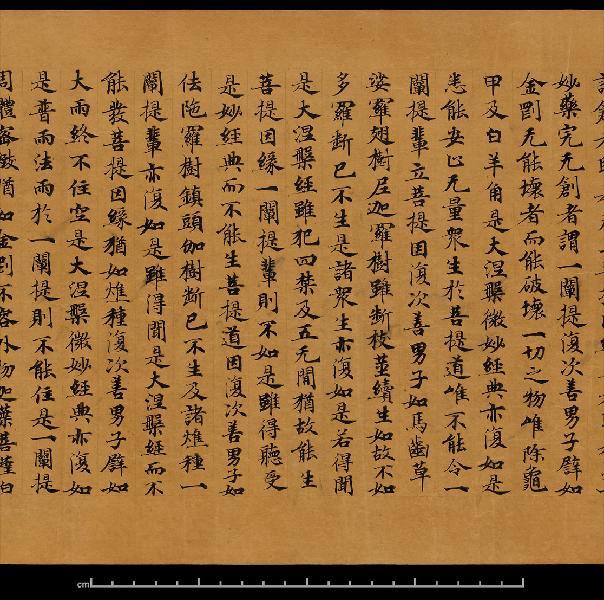 妙藥完无創者謂一闡提復次善男子譬如
金罰无能壞者而能破壞一切之物唯除龜
甲及白羊角是大涅槃微妙經典亦復如是
悉能安止无量衆生於菩提道唯不能令一
闡提輩立菩提因復次善男子如馬齒草
娑羅翅樹尼迦羅樹雖斷枝莖續生如故不如
多羅斷已不生是諸衆生亦復如是若得聞
是大涅槃經雖犯四禁及五无間猶故能生
菩提因緣一闡提輩則不如是雖得聽受
是妙經典而不能生菩提道因復次善男子如
佉陁羅樹鎮頭伽樹斷已不生及諸燋種一
闡提輩亦復如是雖得聞是大涅槃經而不
能發菩提因緣猶如燋種復次善男子譬如
大雨終不住空是大涅槃微妙經典亦復如
是普雨法雨於一闡提則不能住是一闡提
周體密緻猶如金罰不容外物迦葉菩薩白
cm